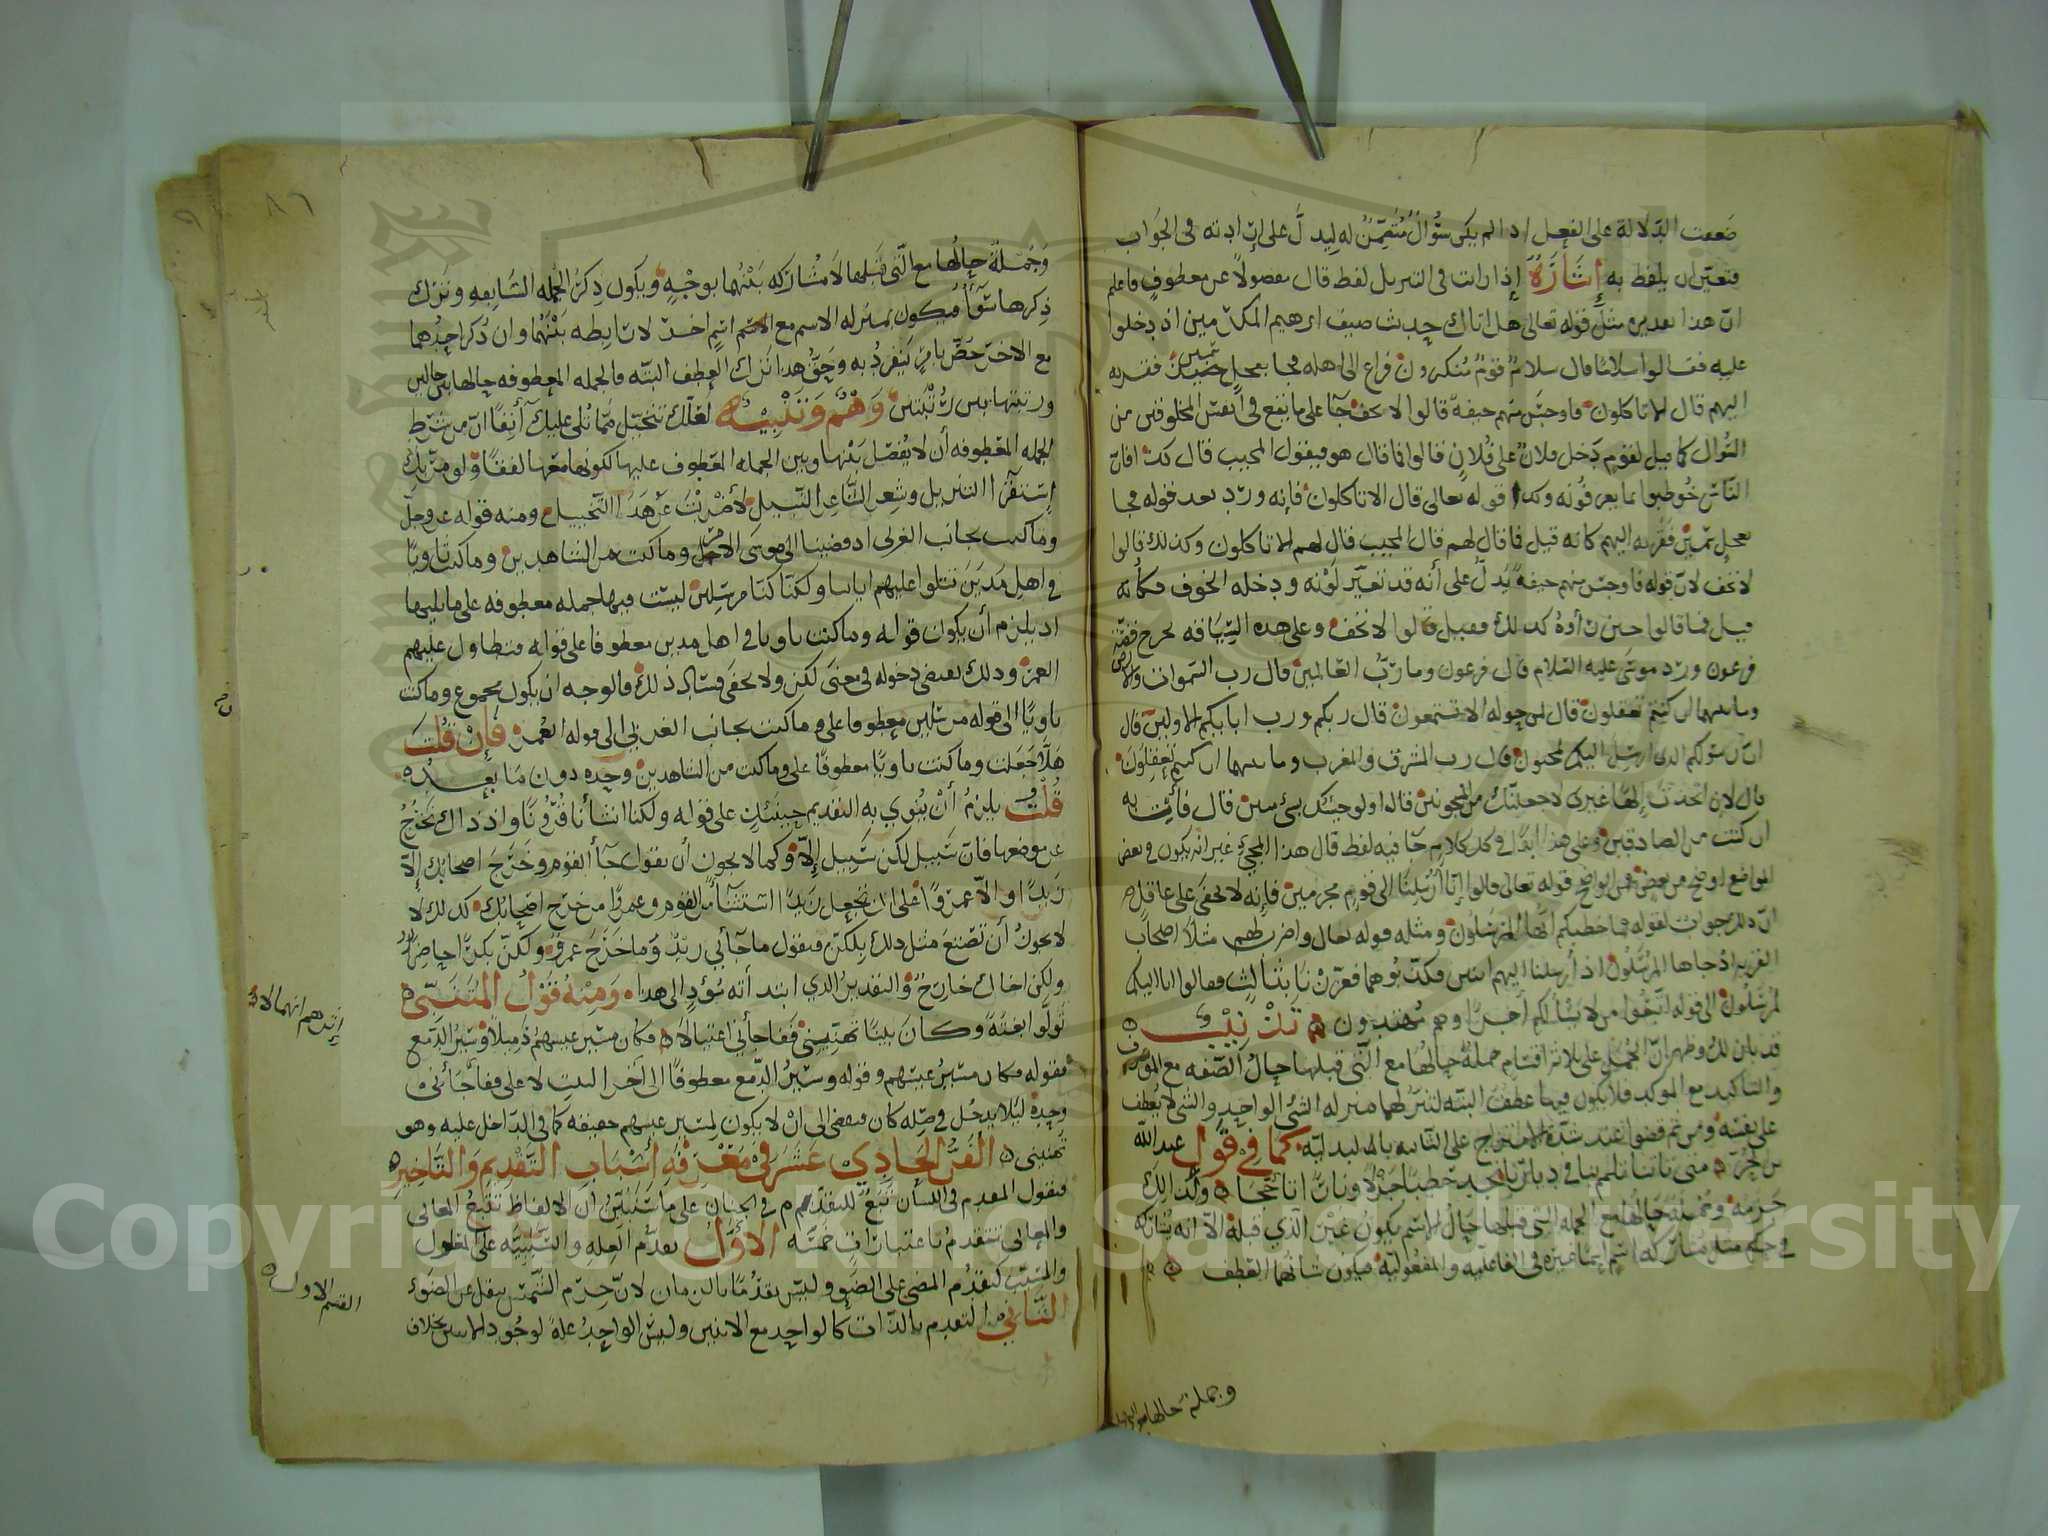 ضعفت الدلالة على الفعل اذا لم يكن سُؤالٌ مُتَضَمِّنٌ له ليدلَّ على ارادته في الجَوَاب
فتعيّن ان يلفظ به إِشَارَةٌ إذا رات في التنزيل لفظ قال مفصولاً عن معطوفٍ فاعلم
انّ هذا تقديره مثل قوله تعالى هل اتاك حديث ضيف ابرهيم المكرمين اذ دخلوا
عليه فقالوا سلامًا قال سلامٌ قومٌ مُنكرون فراغ الى اهله فجا بعجل سمين فقربه
اليهم قال الا تاكلون فاوجس منهم خيفة قالوا لا تخف جا على ما يقع في انفس المخلوقين من
السُّوال كما قيل لقوم دَخل فلانٌ على فُلانٍ قالوا فما قال هو فيقول المجيب قال كذا فانّ
النّاس خُوطبوا بما يعرفونه وكذا قوله تعالى قال الا تاكلون فإنه ورد بعد قوله فجا
بعجل سمين فقرّبه اليهم كانه قيل فما قال لهم قال المجيب قال لهم الا تاكلون وكذلك قالوا
لا تخف لانّ قوله فاوجس منهم خيفةً يَدلّ على أنه قد تغيّر لَوْنه ودخله الخوف فكأنه
قيل فما قالوا حين رأوه كذلك فقيل قالوا لا تخف وعلى هذه السِّيَاقه تخرج قصّة
فرعون وردّ موسَى عليه السَّلام قال فرعون وما رَبُّ العَالمين قال رب السَّموات والارض
وما بينهما ان كنتم تعقلون قال لمن حوله الا تستمعون قال ربكم ورب ابايكم الاولين قال
انّ رسُولكم الذى ارسِل اليكم لمجنون قال رب المشرق والمغرب وما بينهما ان كنتم تَعقِلُونَ
قال لئن اتخذت إلهًا غيرى لاجعلنّك من المسجونين قال اولو جئتك بشئ مبين قال فأتِ به
ان كنت من الصادقين وعلى هذا ابقا في كل كلامٍ جَا فيه لفظ قال هذا المجيْ غير انه يكون في بعض
المواضع اوضح من بعض فمن الواضح قوله تعالى قالوا إِنَّا أُرْسِلنَا الى قومٍ مجرمين فإنه لا يخفَى على عاقل
انّ ذلك جوابٌ لقوله فما خطبكم ايّها المُرسَلُون ومثله قوله تعالى واضرب لهم مثلاً اصحابَ
القرية اذ جاها المُرْسَلُون اذ أرسلنا اليهم اثنين فكذّبوُهما فعزّزنَا بثالثٍ فقالوا انا اليكم
مُرْسَلُون الى قوله اتّبعُوا من لا يَسْأَلكم أجراً وهم مُهتدون تَذْنِيْبٌ
قد بان لك وظهر انّ الجُمل على ثلاثة اقسام جملةٌ حالُهَا مع الّتي قبلها حالُ الصّفه مع الموصُوف
والتاكيد مع الموكد فلا يكون فيها عطفٌ البته لتنزّلهما منزله الشئ الواحد والشئ لا يُعطف
على نفسِهِ ومن ثم قضوا عند شدّة الامتزاج على الثانيه بالبدليّه كما فِي قول عبد الله
بن الحُرّ متى تاتنا تلمم بنا في ديارنا تجد حَطبًا جَزْلاً ونارًا تاجّجَا وكَذلِكَ
جَزمهُ وَجُمْلةٌ حَالُهَا مع الجمله التي قبلها حَالُ الاسْم يكونُ غَيْرَ الّذي قبلهُ الاّ انه يُشَاركه
في حكمٍ مثل مشاركه اسْمٍ اسْمًا غيره في الفَاعليّه والمفعُوليّه فيكون شَانُهما العَطف
وجملة حالها مع التي قبلها
٨٦
وَجُمْلةٌ حالُها مع الّتي قبلها لا مُشَارَكه بَيْنَهُما بوجْهٍ ويكون ذِكرُ الجُمله السَّابِقهِ وتَرْك
ذِكرها سَوَآءً فيكون بمنزله الاسم مع الاسْم اسْمٍ اخر لا رَابِطه بَيْنَهُما وان ذُكر احدُهما
مع الاخر خصّ بامْرٍ يَنفردُ به وحَقُّ هذا تَرك العَطف البتّه فالجمله المعطوفه حالها بين حالين
ورتبتها بين رُتْبَتين وَهْمٌ وَتَنْبِيْهٌ لعَلّك تتخيّل مِمّا تُلى عليكَ آنِفًا انّ من شَرْط
الجمله المعطوفه أن لا يُفصَل بَيْنها وبين الجمله المعطوف عليها لكونها معها لفقًا ولو مرّ بك
اِسْتقرَآ التنزيل وشِعر الشّاعر النّبيل لأضْرَبْتَ عَنْ هَذَا التّخييل ومنه قوله عز وجلّ
وما كنت بجانب الغربى اذ قضينا الى موسَى الامر وما كنت من الشّاهدين وما كنت ثاويًا
في اهل مَدينَ تتلوا عليهم اياتنا ولكنّا كنّا مُرسَلِين ليست فيها جمله معطوفه على ما يليها
اذ يلزم أن يكون قوله وما كنت ثاويا في اهل مدين معطوفا على قوله فتطاول عليهم
العمر وذلك يقتضى دخوله في معنَى لكن ولا يخفَى فسَاد ذلك فالوجه ان يكون مجموع وما كنت
ثاويًا الى قوله مرسَلين معطوفا على وما كنت بجانب الغربي الى قوله العُمر فإِنْ قُلْتَ
هَلاّ جَعَلتَ وما كنت ثاويًا معطوفًا على وما كنت من الشاهدين وحده دون مَا بعْدَهُ
قُلْتُ يلزمُ أنْ يُنوي به التقديم حِينَئذٍ على قوله ولكنا انشأنا قُرُونًا واذ ذاك تَخرجُ
عن موضعها فانّ سَبيل لكن سَبِيل إلّا وكما لا يجوز أن يقول جآ القوم وخَرَجَ اصحابك إلّا
زَيدًا او الاّ عمروًا على ان تجعل زَيدًا استثنَآً من القوم وعمروًا من خرج اصْحَابك كذلك لا
لا يجوزُ أن تصْنَعَ مثل ذلك بِلكنّ فيقول ما جآني زيدٌ وَما خَرَجَ عمروٌ ولكنّ بكرًا حاضِرٌ
ولكن اخاك خارجٌ والتقديرُ الذي ابتدأته مُؤدٍ الى هذا وَمِنْهُ قَوْلُ المُتَنَبِّي
تَولّوا بغتَةً وكانَ بينًا تَهَيَّبِني فَفَاجأني اغتيالا فكان مَسْيرُ عيسهمُ ذَميلاً وسَيْرُ الدّمع
فقوله فكان مسيْرُ عيسهم وقوله وسَيْرُ الدّمع معطوفًا الى آخر البيت لا على ففاجَأني
وحدِهُ ليَلا يدخُل في صِله كان فيفضى الى انْ لا يكون لمسير عيسهم حقيقه كما في الدّاخل عليه وهو
تهيبنى الفَنُّ الحَادِيْ عَشَرَ فِيْ مَعْرِفَةِ أَسْبَابِ التَّقْدِيْمِ وَالتَّاخِيْرِ
فنقول المقدم في اللسَان تَبَعٌ للمتقدّم في الجنان على ما سَتَتَبَيّنُ ان الالفاظ تتْبَعُ المعانى
والمعاني تتقدمُ باعتبارَاتٍ خمْسَه الأوّلُ تقدّم العله والسَّبَبيَّه على المعلول
والمسَبّب كتقدم المضى على الضَوء وليسَ تقدُمًا بالزمان لانّ جرْم الشّمس لا ينفك عن الضَوْء
الثَّانِي التقدم بالذّات كالواحد مع الاثنين وليس الواحدُ علهً لوجُود الاثنين بخلاف
القسم الاول